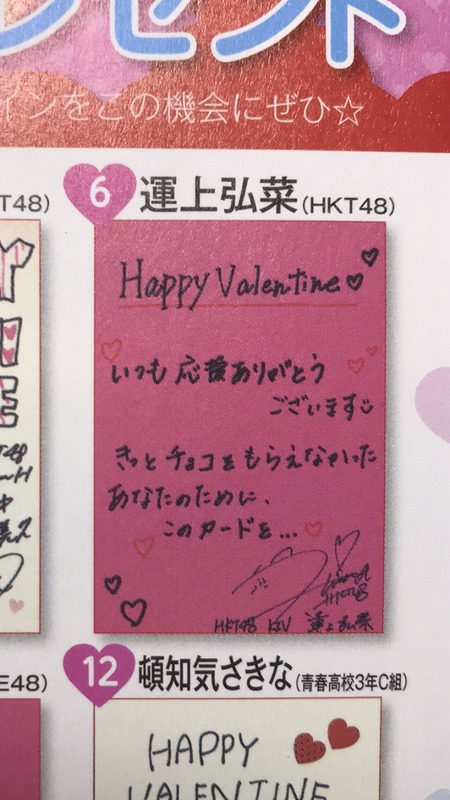 レゼント
インをこの機会にぜひ☆
T48)
6 運上弘菜(HKT48)
Happy Valentine
いつも 応援ありがとう
ございます
きっと チョコをもらえなかった
あなたのために、
このカードを...
HKT48
HKT48 KIV 運上弘菜
E48)
12 頓知気さきな(青春高校3年C組)
HAPPY
VALENTINE